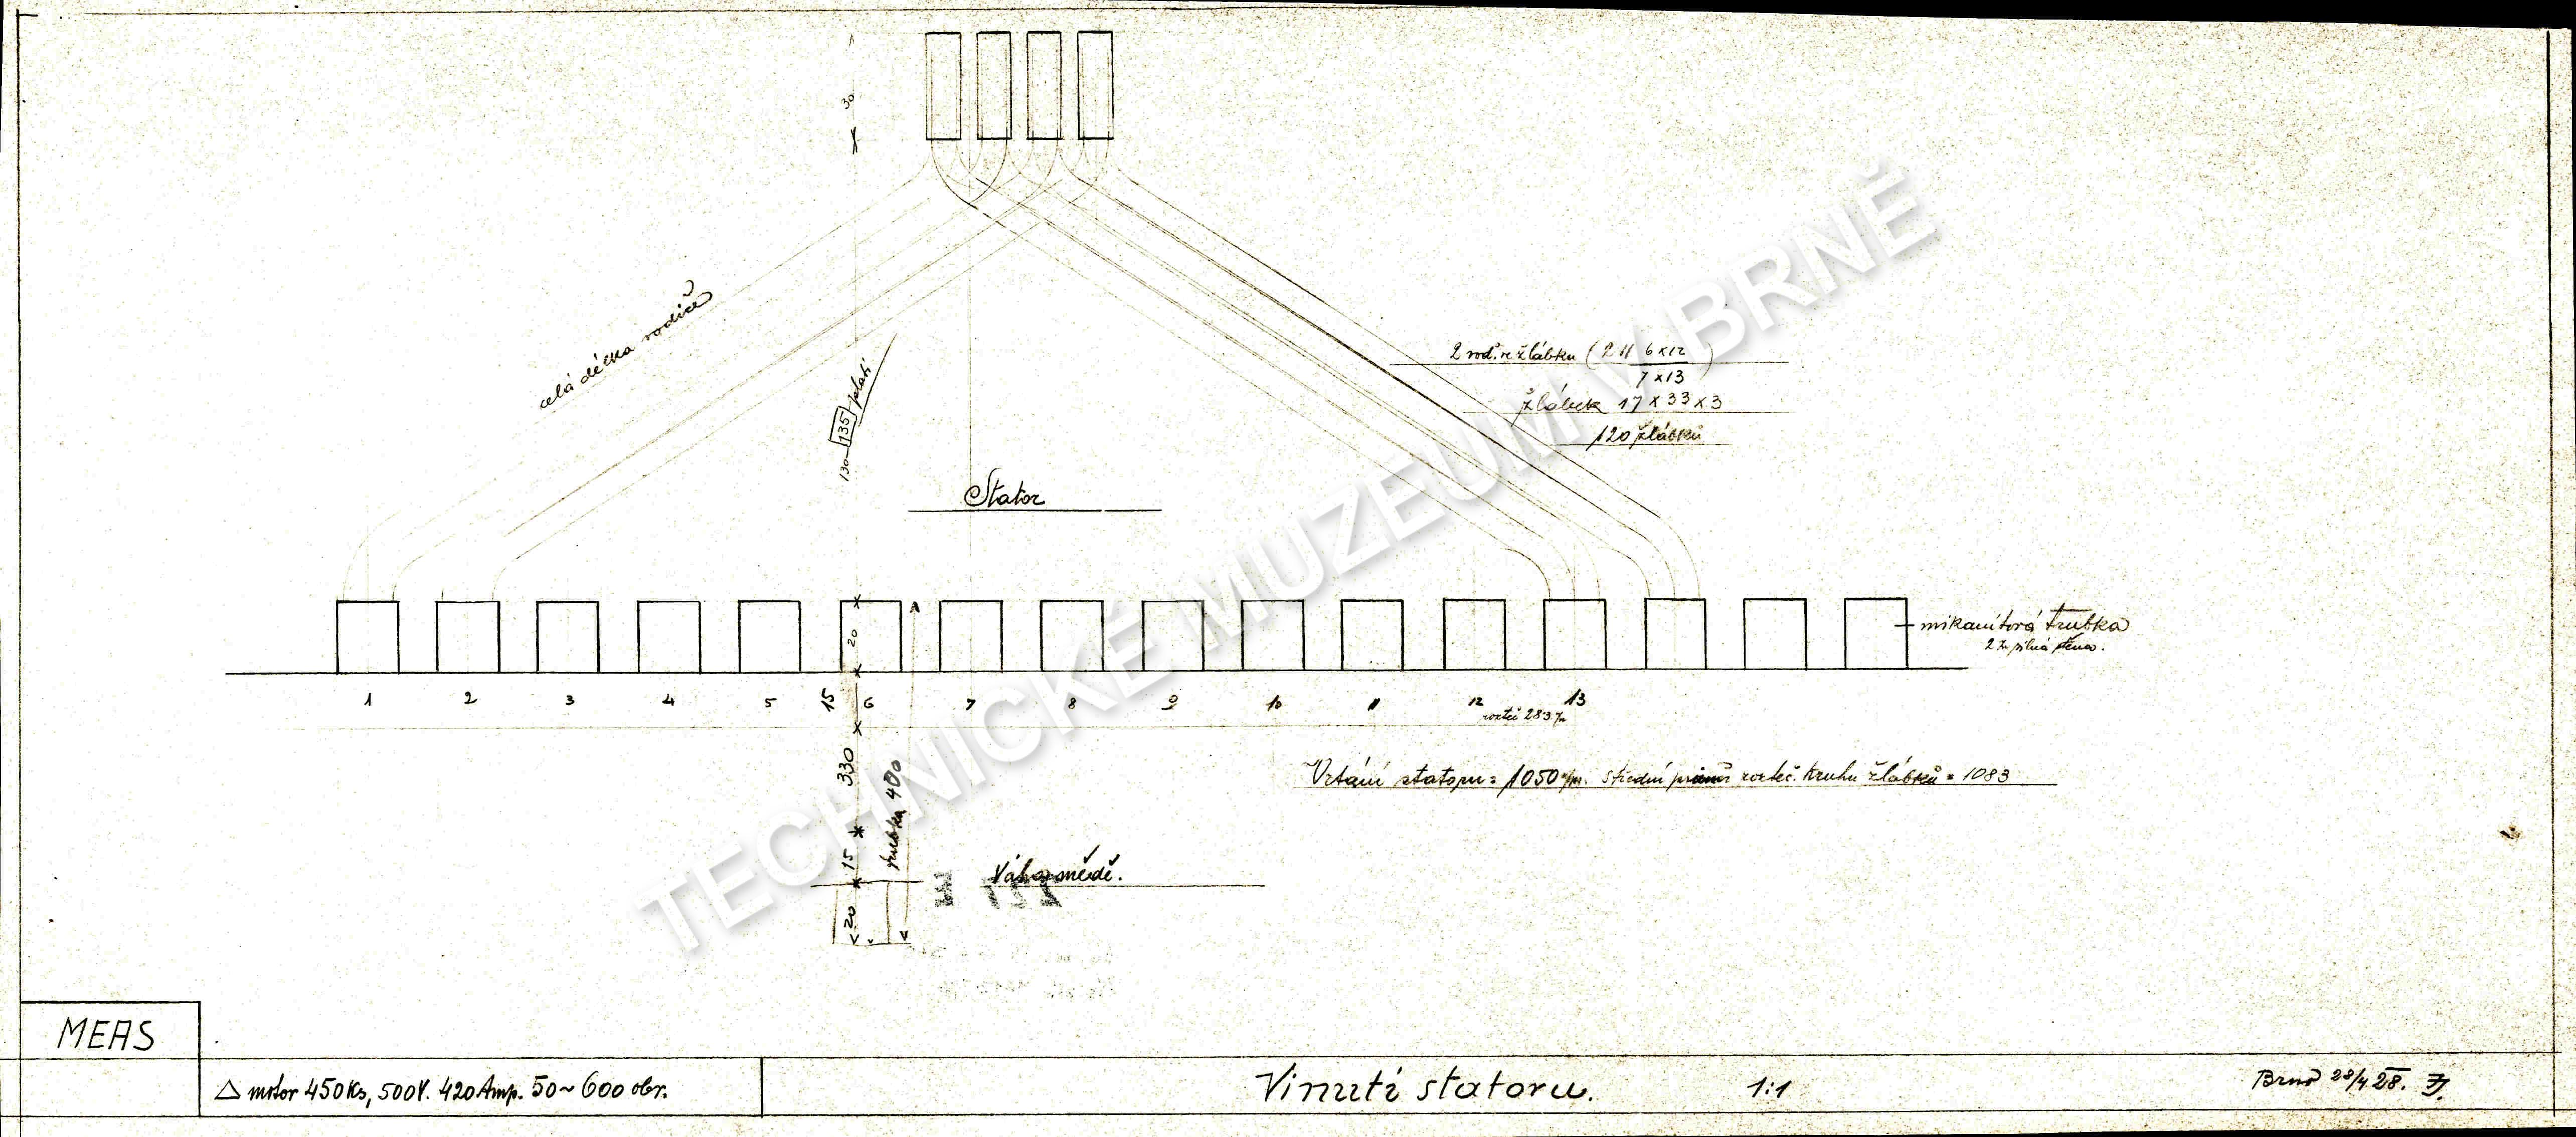 30
celá délka vodiče
130-135 platí
2 vod. v žlábku (2 II 6x12
7x13 )
žlábek 17x33x3
120 žlábků
Stator
20
mikanitová trubka
1 2 3 4 5 15 6 7 8 9 10 11 12 13
rozteč 28.3
330
trubka 400
Vrtání statoru = 1050 m/m. střední průměr rozteč. kruhu žlábků = 1083
15
Váha mědi.
20
TECHNICKÉ MUZEUM V BRNĚ
MEAS
△ motor 450 Ks, 500V. 420 Amp. 50~ 600 obr.
Vinutí statoru. 1:1
Brno 28/4 28.